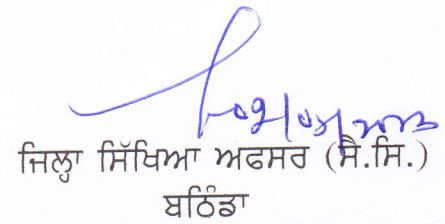 ਜਿਲ੍ਹਾ ਸਿੱਖਿਆ ਅਫਸਰ (ਸੈ.ਸਿ.)
ਬਠਿੰਡਾ